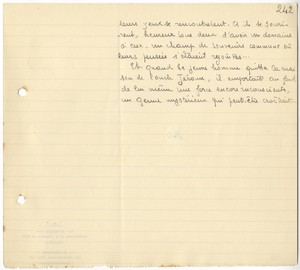 242
leurs yeux se rencontrèrent. Et ils se souri-
rent, heureux tous deux d'avoir un domaine
à eux, un champ de souvenirs communs où
leurs pensées s'étaient rejointes...
Et quand le jeune homme quitta la mai
son de l'oncle Jérôme, il emportait au fond
de lui même une force encore inconsciente,
un germe mystérieux qui peut-être croîtrait.